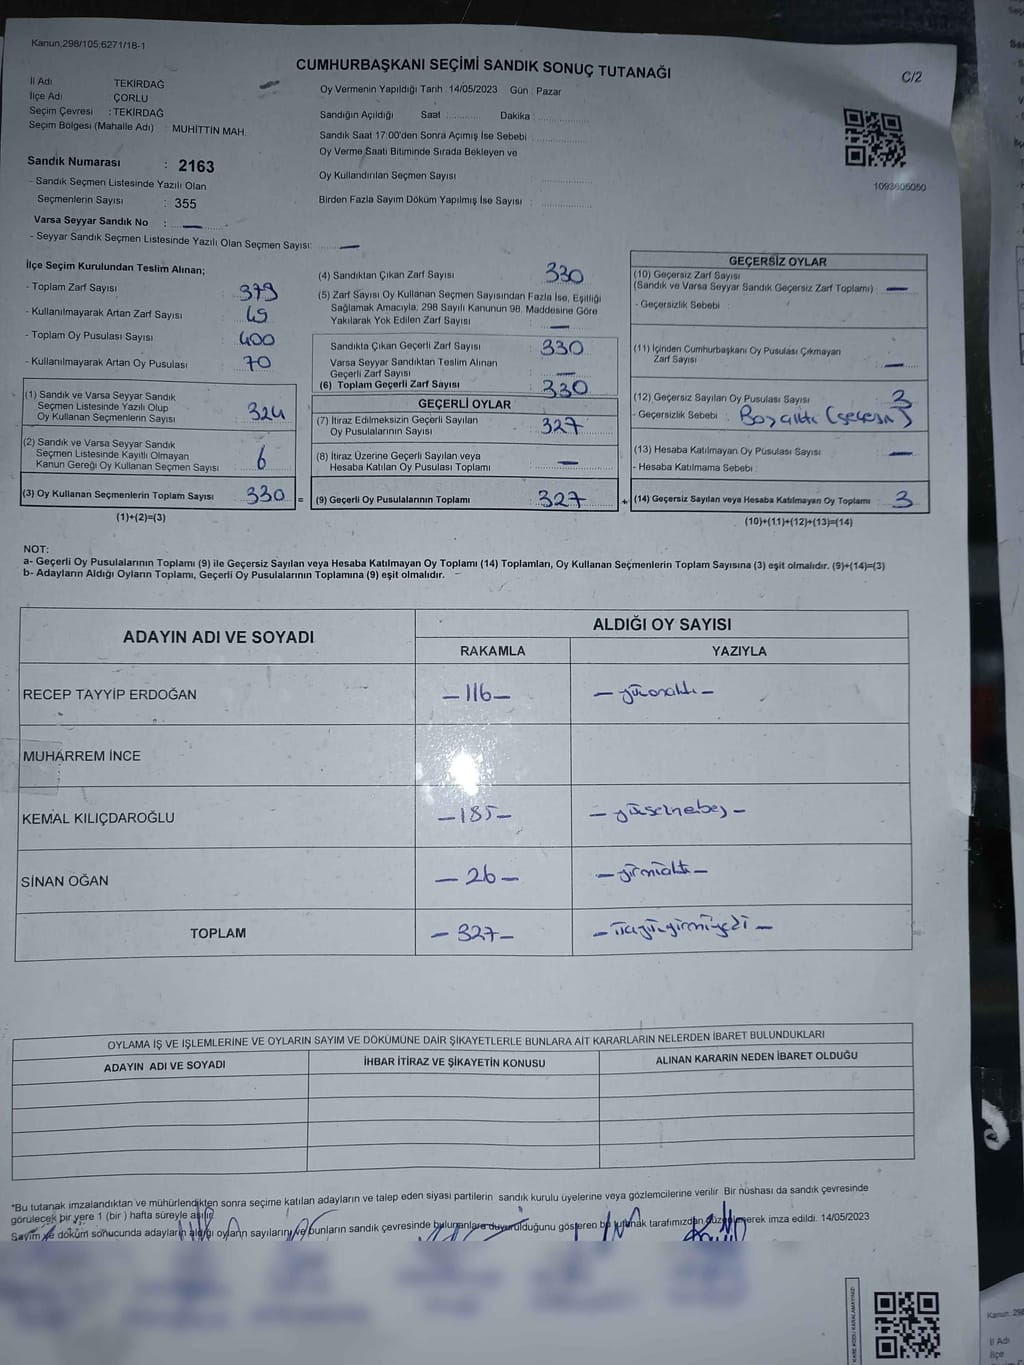 Kanun;298/105;6271/18-1
CUMHURBAŞKANI SEÇİMİ SANDIK SONUÇ TUTANAĞI
C/2
İl Adı TEKİRDAĞ
İlçe Adı ÇORLU
Seçim Çevresi : TEKİRDAĞ
Seçim Bölgesi (Mahalle Adı) : MUHİTTİN MAH.
Sandık Numarası : 2163
- Sandık Seçmen Listesinde Yazılı Olan
Seçmenlerin Sayısı : 355
Varsa Seyyar Sandık No : —
- Seyyar Sandık Seçmen Listesinde Yazılı Olan Seçmen Sayısı: —
Oy Vermenin Yapıldığı Tarih : 14/05/2023 Gün : Pazar
Sandığın Açıldığı Saat : Dakika :
Sandık Saat 17:00'den Sonra Açımış İse Sebebi :
Oy Verme Saati Bitiminde Sırada Bekleyen ve
Oy Kullandırılan Seçmen Sayısı
Birden Fazla Sayım Döküm Yapılmış İse Sayısı :
1093605050
İlçe Seçim Kurulundan Teslim Alınan;
- Toplam Zarf Sayısı : 379
- Kullanılmayarak Artan Zarf Sayısı : 49
- Toplam Oy Pusulası Sayısı : 400
- Kullanılmayarak Artan Oy Pusulası : 70
(1) Sandık ve Varsa Seyyar Sandık
Seçmen Listesinde Yazılı Olup
Oy Kullanan Seçmenlerin Sayısı : 324
(2) Sandık ve Varsa Seyyar Sandık
Seçmen Listesinde Kayıtlı Olmayan
Kanun Gereği Oy Kullanan Seçmen Sayısı : 6
(3) Oy Kullanan Seçmenlerin Toplam Sayısı : 330
(1)+(2)=(3)
(4) Sandıktan Çıkan Zarf Sayısı : 330
(5) Zarf Sayısı Oy Kullanan Seçmen Sayısından Fazla İse, Eşitliği
Sağlamak Amacıyla; 298 Sayılı Kanunun 98. Maddesine Göre
Yakılarak Yok Edilen Zarf Sayısı : —
Sandıkta Çıkan Geçerli Zarf Sayısı : 330
Varsa Seyyar Sandıktan Teslim Alınan
Geçerli Zarf Sayısı : —
(6) Toplam Geçerli Zarf Sayısı : 330
GEÇERLİ OYLAR
(7) İtiraz Edilmeksizin Geçerli Sayılan
Oy Pusulalarının Sayısı : 327
(8) İtiraz Üzerine Geçerli Sayılan veya
Hesaba Katılan Oy Pusulası Toplamı : —
= (9) Geçerli Oy Pusulalarının Toplamı : 327
GEÇERSİZ OYLAR
(10) Geçersiz Zarf Sayısı
(Sandık ve Varsa Seyyar Sandık Geçersiz Zarf Toplamı) : —
- Geçersizlik Sebebi :
(11) İçinden Cumhurbaşkanı Oy Pusulası Çıkmayan
Zarf Sayısı : —
(12) Geçersiz Sayılan Oy Pusulası Sayısı : 3
- Geçersizlik Sebebi :
(13) Hesaba Katılmayan Oy Pusulası Sayısı : —
- Hesaba Katılmama Sebebi :
+ (14) Geçersiz Sayılan veya Hesaba Katılmayan Oy Toplamı : 3
(10)+(11)+(12)+(13)=(14)
NOT:
a- Geçerli Oy Pusulalarının Toplamı (9) ile Geçersiz Sayılan veya Hesaba Katılmayan Oy Toplamı (14) Toplamları, Oy Kullanan Seçmenlerin Toplam Sayısına (3) eşit olmalıdır. (9)+(14)=(3)
b- Adayların Aldığı Oyların Toplamı, Geçerli Oy Pusulalarının Toplamına (9) eşit olmalıdır.
ADAYIN ADI VE SOYADI ALDIĞI OY SAYISI
RAKAMLA YAZIYLA
RECEP TAYYİP ERDOĞAN —116— — yüzonaltı —
MUHARREM İNCE
KEMAL KILIÇDAROĞLU —185— — yüzseksenbeş —
SİNAN OĞAN — 26 — — yirmialtı —
TOPLAM — 327 — — üçyüzyirmiyedi —
OYLAMA İŞ VE İŞLEMLERİNE VE OYLARIN SAYIM VE DÖKÜMÜNE DAİR ŞİKAYETLERLE BUNLARA AİT KARARLARIN NELERDEN İBARET BULUNDUKLARI
ADAYIN ADI VE SOYADI İHBAR İTİRAZ VE ŞİKAYETİN KONUSU ALINAN KARARIN NEDEN İBARET OLDUĞU
*Bu tutanak imzalandıktan ve mühürlendikten sonra seçime katılan adayların ve talep eden siyasi partilerin sandık kurulu üyelerine veya gözlemcilerine verilir. Bir nüshası da sandık çevresinde
görülecek bir yere 1 (bir) hafta süreyle asılır.
Sayım ve döküm sonucunda adayların aldığı oyların sayılarını ve bunların sandık çevresinde bulunanlara duyurulduğunu gösteren bu tutanak tarafımızdan düzenlenerek imza edildi. 14/05/2023